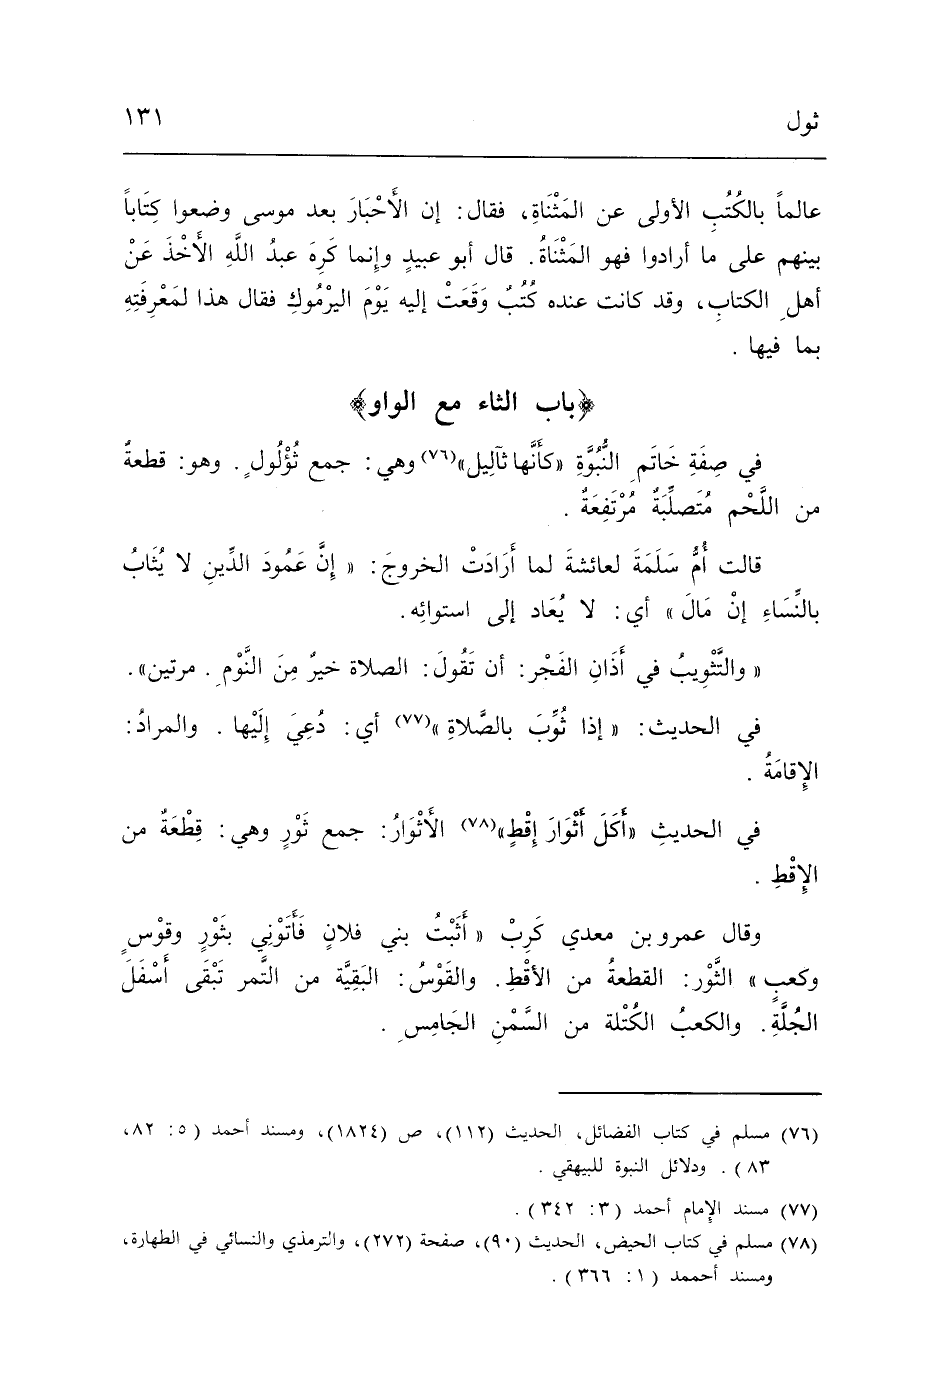 ثول ١٣١
عالماً بالكُتُبِ الأولى عن المَثْنَاةِ، فقال: إن الأَحْبَارَ بعد موسى وضعوا كِتَاباً
بينهم على ما أرادوا فهو المَثْنَاةُ. قال أبو عبيدٍ وإنما كَرِهَ عبدُ اللَّهِ الأَخْذَ عَنْ
أهلِ الكتابِ، وقد كانت عنده كُتُبٌ وَقَعَتْ إليه يَوْمَ اليرْمُوكِ فقال هذا لمَعْرِفَتِهِ
بما فيها .
﴿باب الثاء مع الواو﴾
في صِفَةِ خَاتَمِ النُّبُوَّةِ «كأَنَّها ثآلِيل»(٧٦) وهي: جمع ثُؤْلُولٍ. وهو: قطعةٌ
من اللَّحْم مُتَصلِّبَةٌ مُرْتَفِعَةٌ .
قالت أُمُّ سَلَمَةَ لعائشةَ لما أَرَادَتْ الخروجَ: « إِنَّ عَمُودَ الدِّينِ لا يُثَابُ
بالنِّسَاءِ إنْ مَالَ » أي: لا يُعَاد إلى استوائِه.
« والتَّثْوِيبُ في أَذَانِ الفَجْر: أن تَقُولَ: الصلاة خيرٌ مِنَ النَّوْمِ. مرتين».
في الحديث: « إذا ثُوِّبَ بالصَّلاةِ »(٧٧) أي: دُعِيَ إِلَيْها . والمرادُ:
الإِقامَةُ .
في الحديثِ «أَكَلَ أَثْوَارَ إِقْطٍ»(٧٨) الأَثْوَارُ: جمع ثَوْرٍ وهي: قِطْعَةٌ من
الإِقْطِ .
وقال عمرو بن معدي كَرِبْ « أَثَبْتُ بني فلانٍ فَأَتَوْنِي بثَوْرٍ وقوْسٍ
وكعبٍ » الثَّوْر: القطعةُ من الأقْطِ. والقَوْسُ: البَقِيَّة من التَّمر تَبْقَى أَسْفَلَ
الجُلَّةِ. والكعبُ الكُتْلة من السَّمْنِ الجَامِسِ .
(٧٦) مسلم في كتاب الفضائل، الحديث (١١٢)، ص (١٨٢٤)، ومسند أحمد (٥: ٨٢،
٨٣) . ودلائل النبوة للبيهقي .
(٧٧) مسند الإِمام أحمد (٣: ٣٤٢) .
(٧٨) مسلم في كتاب الحيض، الحديث (٩٠)، صفحة (٢٧٢)، والترمذي والنسائي في الطهارة،
ومسند أحممد (١: ٣٦٦) .